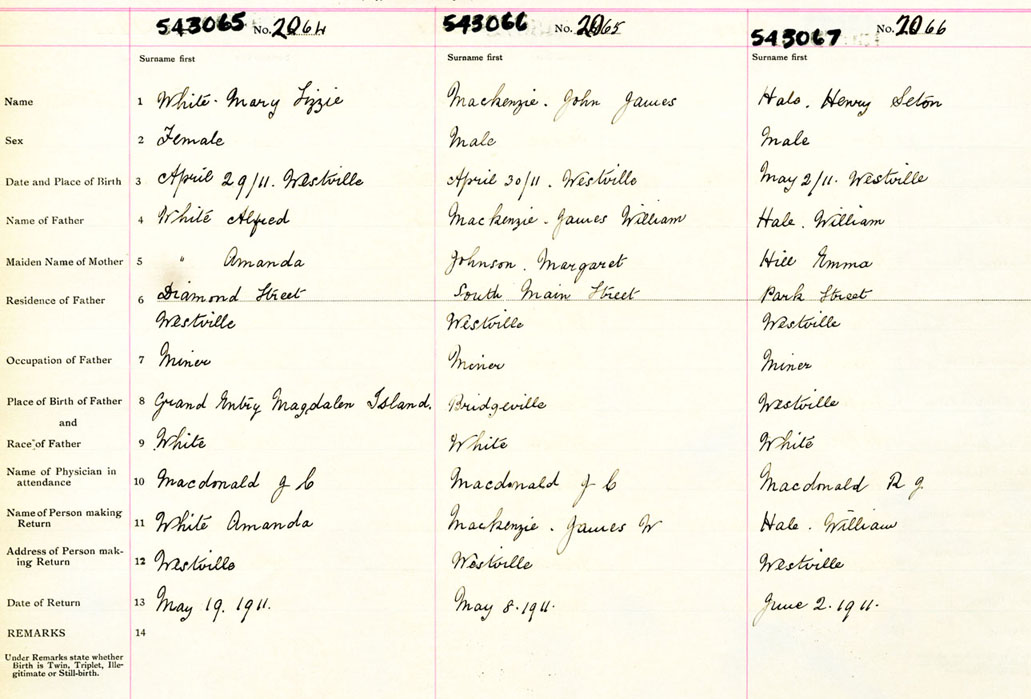 543065 No. 2064 543066 No. 2065 543067 No. 2066
Surname first Surname first Surname first
Name 1 White. Mary Lizzie Mackenzie. John James Hale. Henry Seton
Sex 2 Female Male Male
Date and Place of Birth 3 April 29/11. Westville April 30/11. Westville May 2/11. Westville
Name of Father 4 White Alfred Mackenzie. James William Hale. William
Maiden Name of Mother 5 " Amanda Johnson. Margaret Hill Emma
Residence of Father 6 Diamond Street South Main Street Park Street
Westville Westville Westville
Occupation of Father 7 Miner Miner Miner
Place of Birth of Father 8 Grand Entry Magdalen Island. Bridgeville Westville
and
Race of Father 9 White White White
Name of Physician in
attendance 10 Macdonald J C Macdonald J C Macdonald R J
Name of Person making
Return 11 White Amanda Mackenzie. James W Hale. William
Address of Person mak-
ing Return 12 Westville Westville Westville
Date of Return 13 May 19. 1911. May 8. 1911. June 2. 1911.
REMARKS 14
Under Remarks state whether
Birth is Twin, Triplet, Ille-
gitimate or Still-birth.